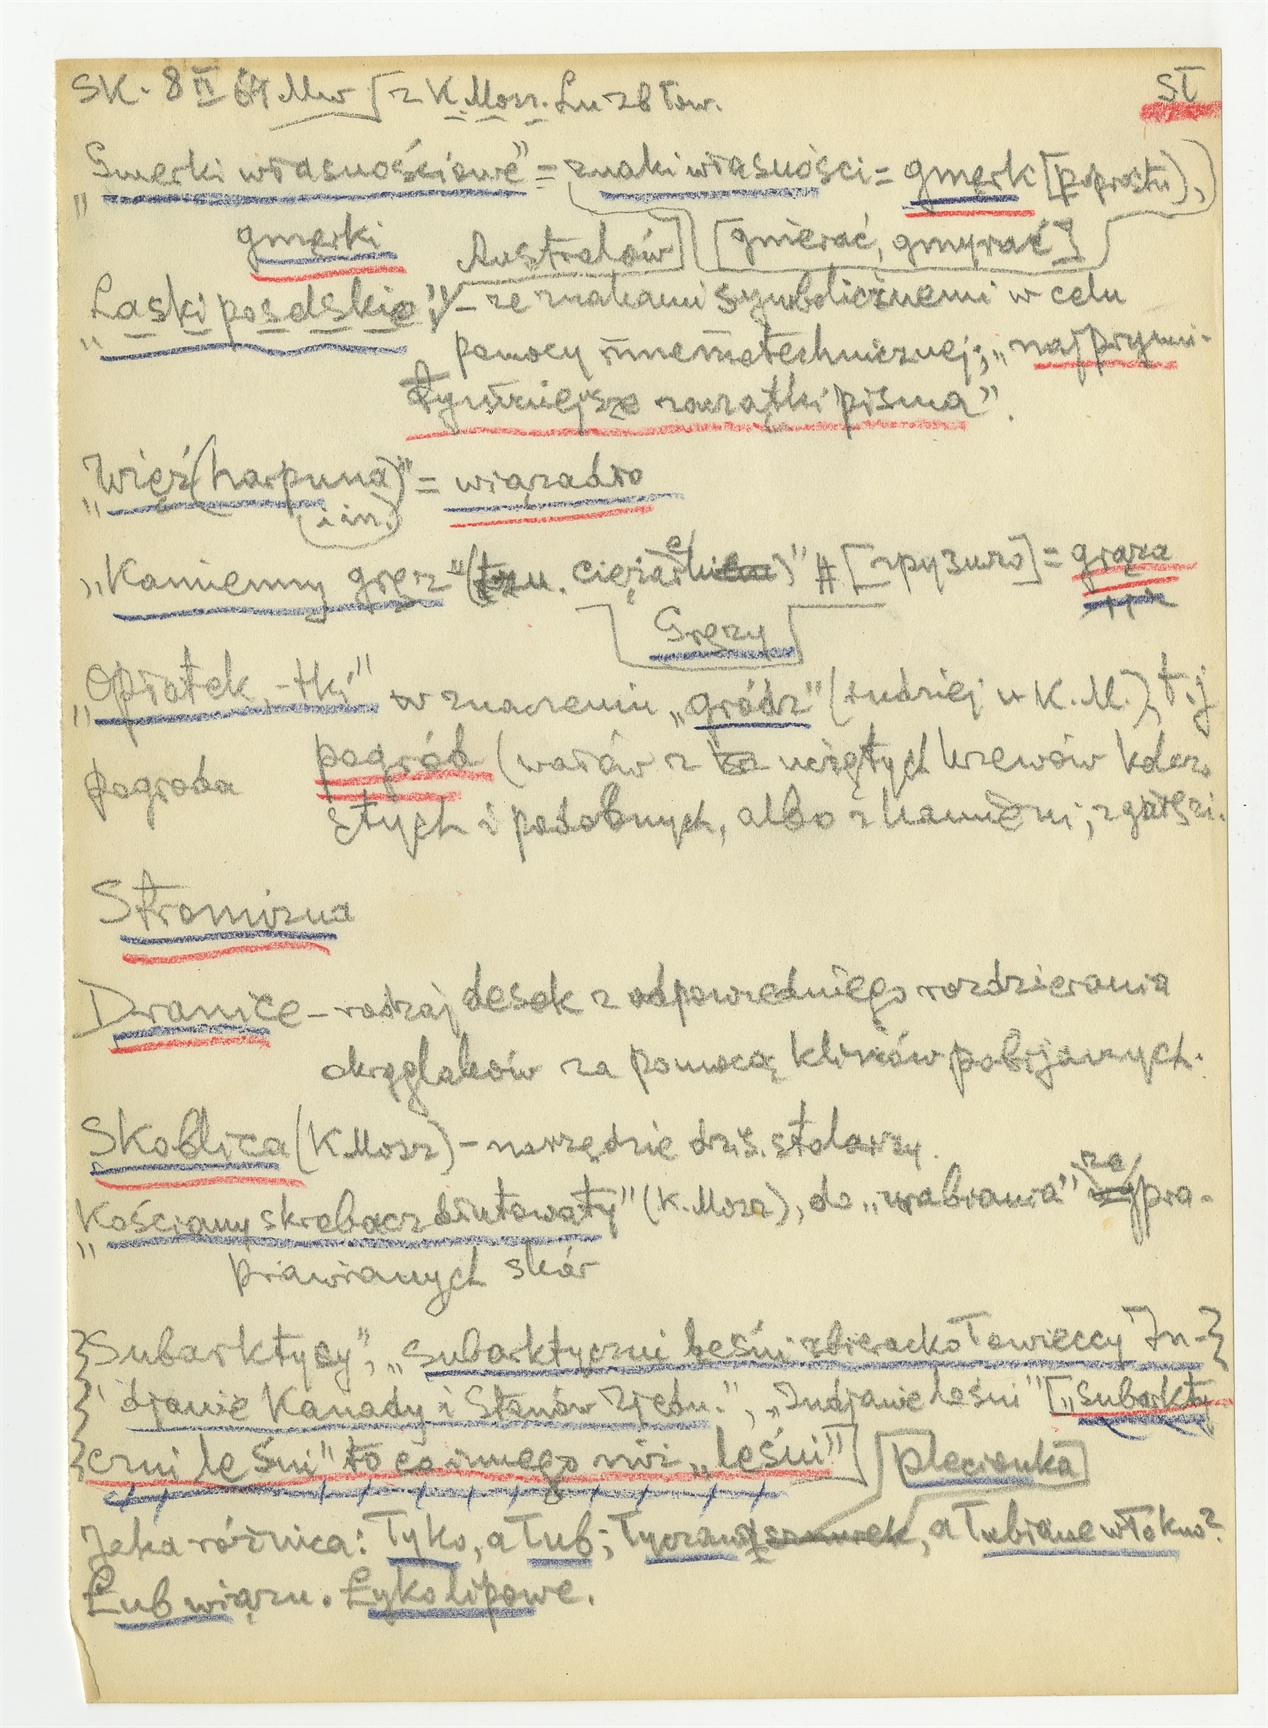 SK. 8 II 64 Mw [z K. Mosz. Lu zb łow. SŁ
„Gmerki własnościowe" = znaki własności = gmerk [poprostu),
gmerki Australów] [gmerać, gmyrać]
„Laski poselskie", – ze znakami symbolicznemi w celu
pomocy mnemotechnicznej; „najprymi-
tywniejsze zaczątki pisma".
„Więź (harpuna)" = wiązadło
(i in.)
„Kamienny gręz" (tzu. ciężarki)" # [zpyzuro] = grąza
Gręzy
„Opłotek, -tki" w znaczeniu „gródz" (tudziej u K. M.), t.j
pogroda pogród (wałów z uciętych krzewów kolcz
stych i podobnych, albo z kamieni; z gałęzi.
Stromizna
Dranice – rodzaj desek z odpowiedniego rozdzierania
okrąglaków za pomocą klinów pobijanych.
Skoblica (K. Mosz) – narzędzie dziś. stolarzy.
„Kościany skrobacz dłutowaty" (K. Mosz), do „urabiania" za pra-
prawianych skór
„Subarktycy", „subarktyczni leśni zbieracko łowieccy In-
djanie Kanady i Stanów Zjedn.", „Indjanie leśni" [„subarkty
czni leśni" to co innego niż „leśni"] plecionka
Jaka różnica: łyko, a łub; łyczany sznurek, a łubiane włókno?
Łub wiązu. Łyko lipowe.